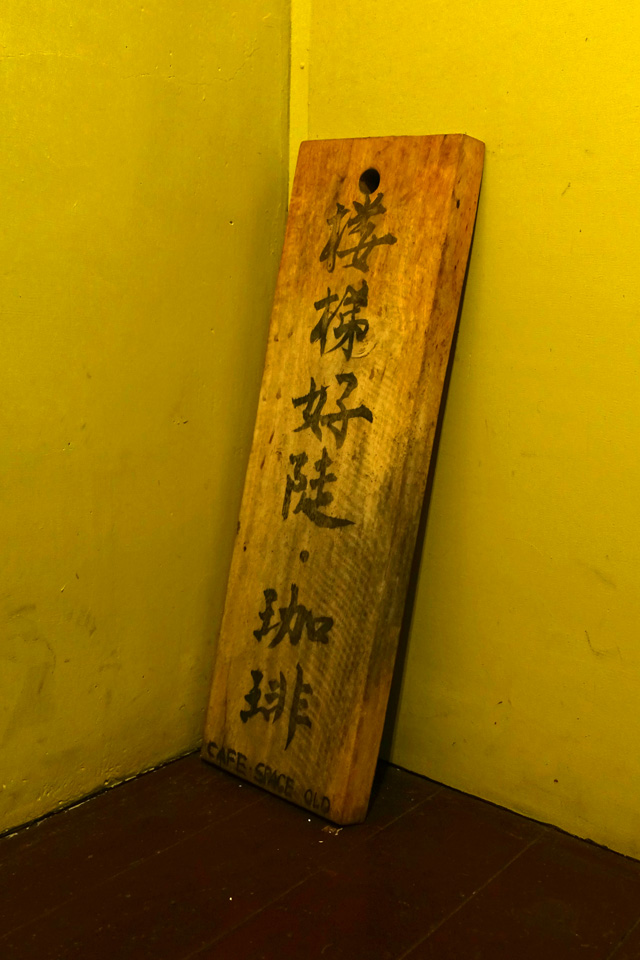 楼梯好陡·珈琲
CAFE·SPACE OLD